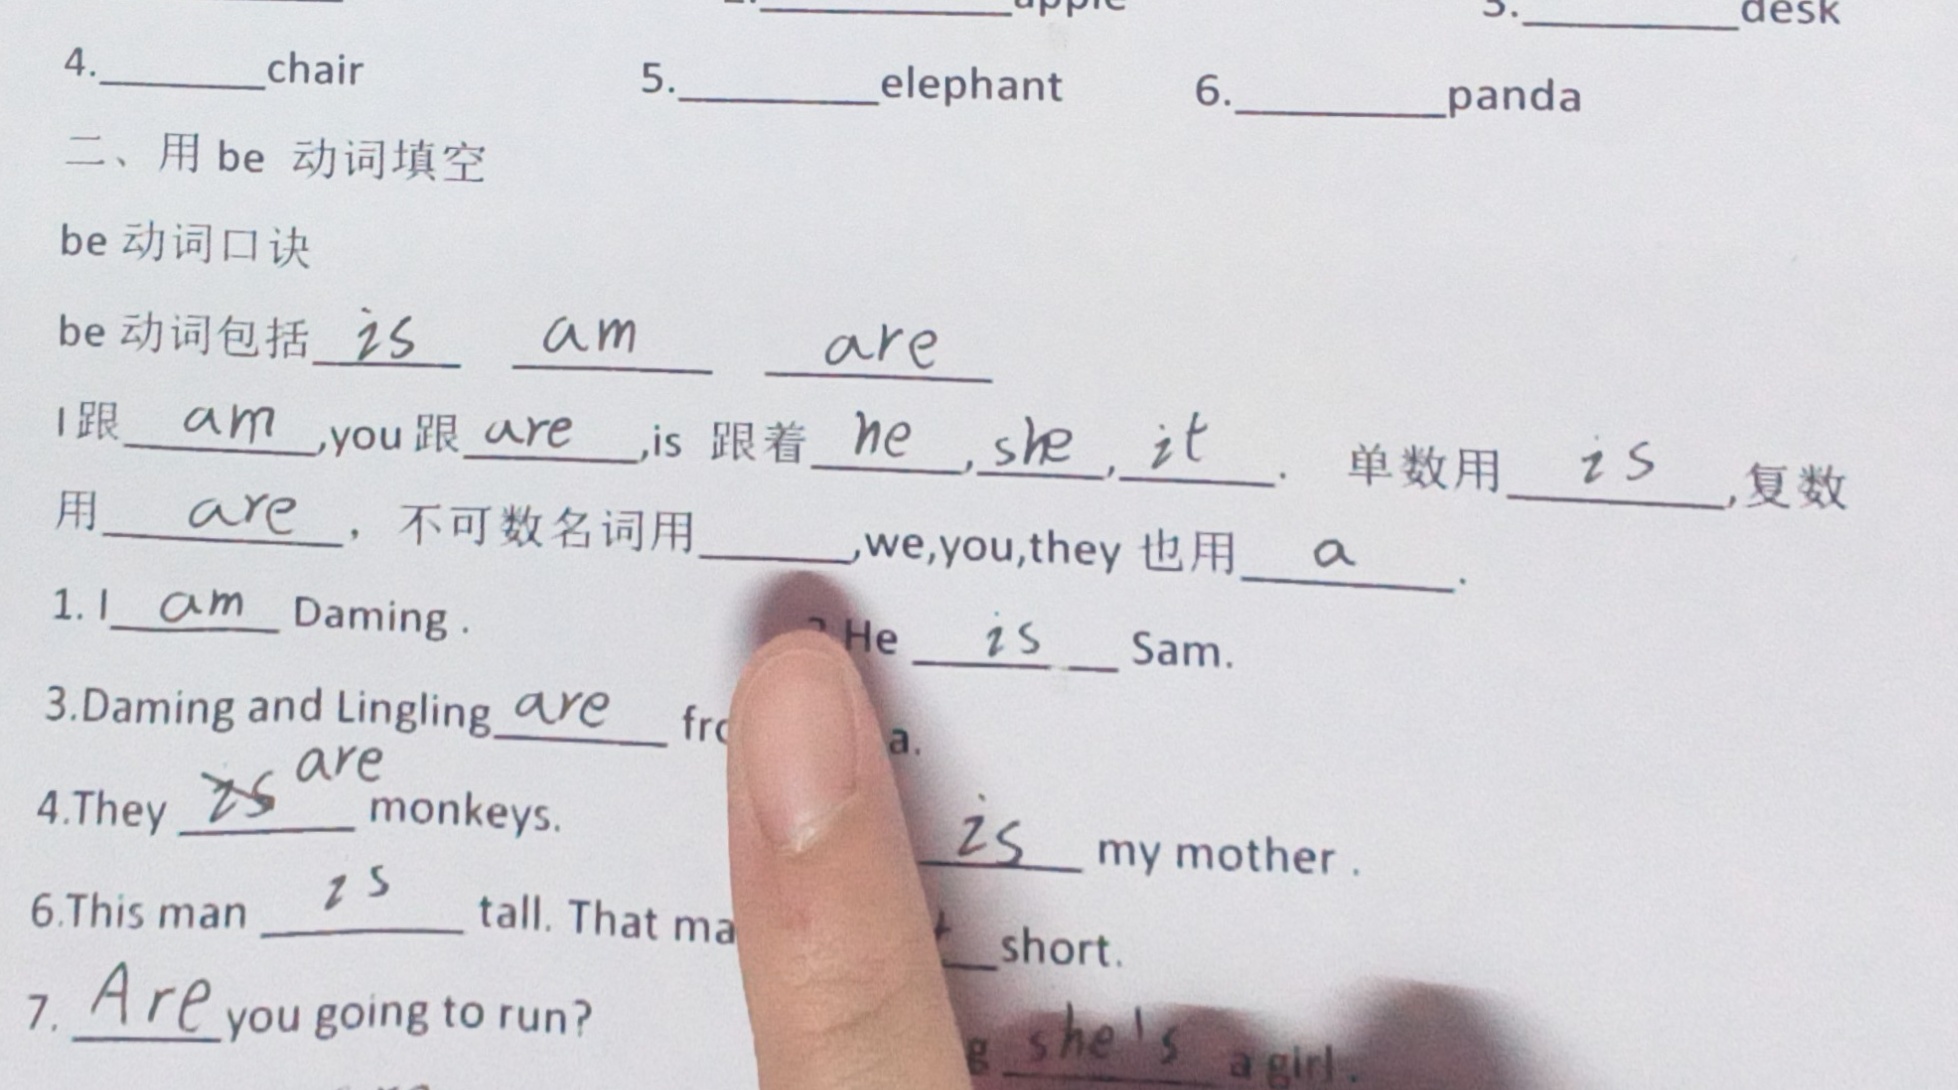 apple 3.________desk
4.________chair 5.________elephant 6.________panda
二、用 be 动词填空
be 动词口诀
be 动词包括 is am are
I 跟 am ,you 跟 are ,is 跟着 he , she , it . 单数用 is ,复数
用 are ，不可数名词用______,we,you,they 也用 a .
1. I am Daming . He is Sam.
3.Daming and Lingling are a.
4.They is are monkeys. is my mother .
6.This man is tall. That short.
7. Are you going to run? g she's a girl .